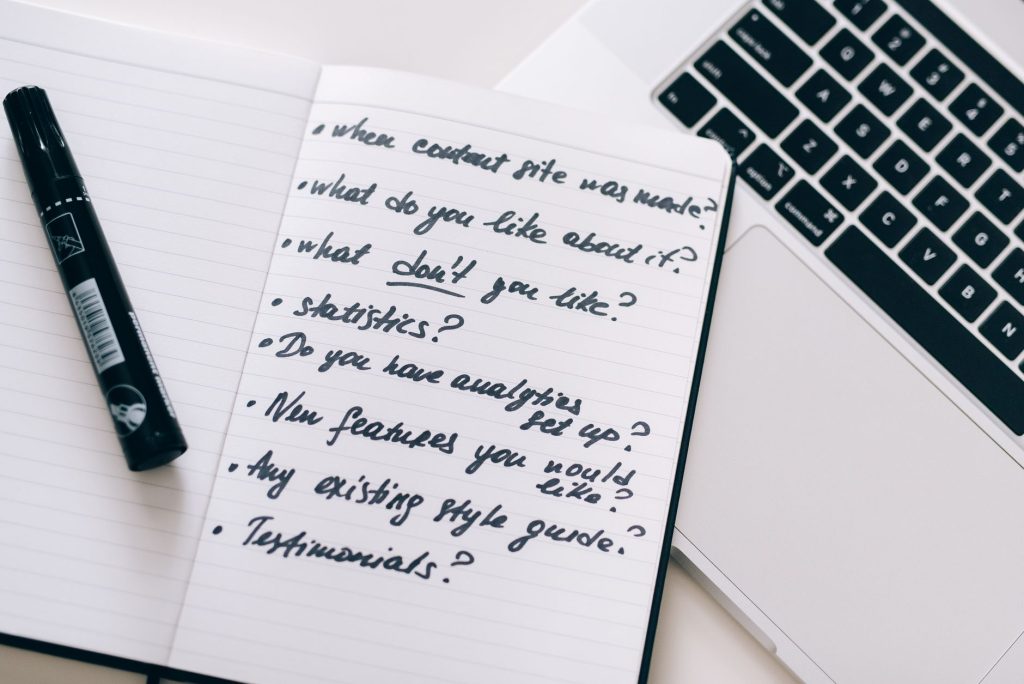 • when current site was made?
• what do you like about it?
• what don't you like?
• statistics?
• Do you have analytics
set up?
• New features you would
like?
• Any existing style guide?
• Testimonials?
1 2 3 4 5
Q W E R T
caps lock A S D F G H
shift Z X C V B N
fn option command